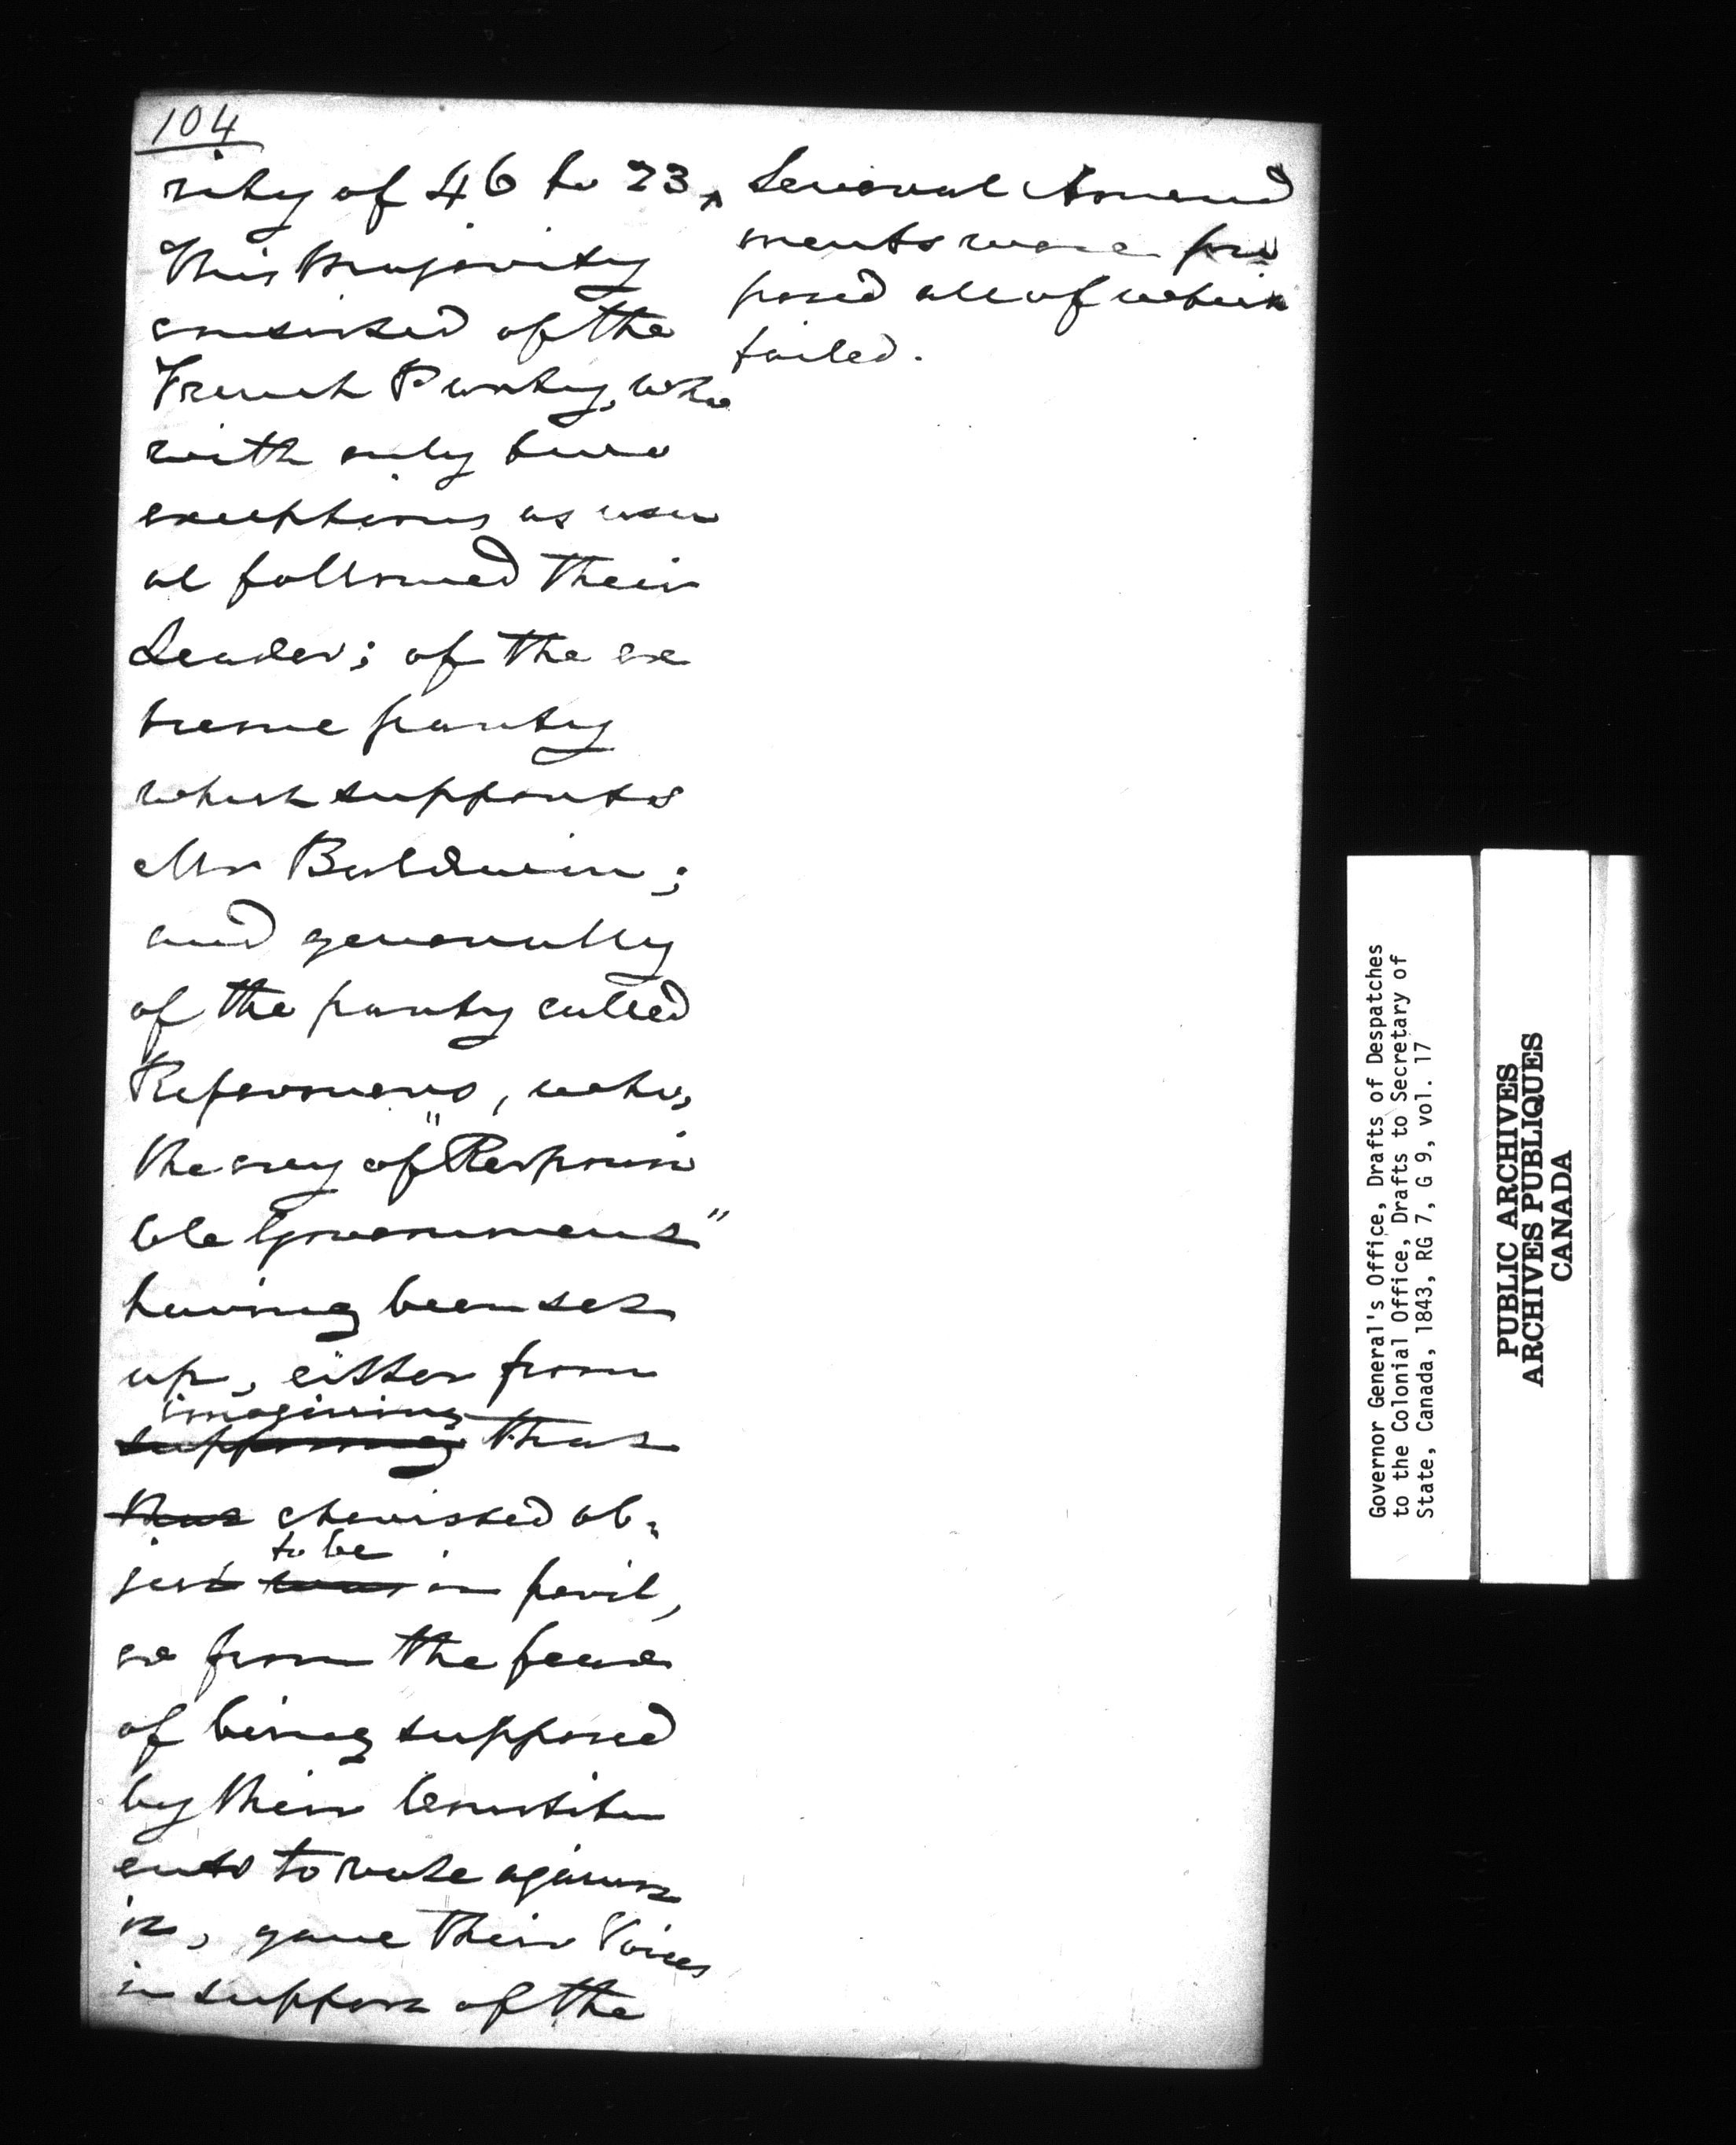 104
rity of 46 to 23 ^
This Majority
consisted of the
French Party, who
with only two
exceptions as usu
al followed their
Leader; of the ex
treme party
which supports
Mr Baldwin;
and generally
of the party called
Reformers, who,
the cry of "Responsi
ble Government"
having been set
up, either from
imagining
supposing that
that cherished ob:
to be
ject was in peril,
or from the fear
of being supposed
by their Constitu
ents to vote against
it, gave their Voices
in support of the
Several Amend
ments were pro
posed all of which
failed.
Governor General's Office, Drafts of Despatches
to the Colonial Office, Drafts to Secretary of
State, Canada, 1843, RG 7, G 9, vol. 17
PUBLIC ARCHIVES
ARCHIVES PUBLIQUES
CANADA